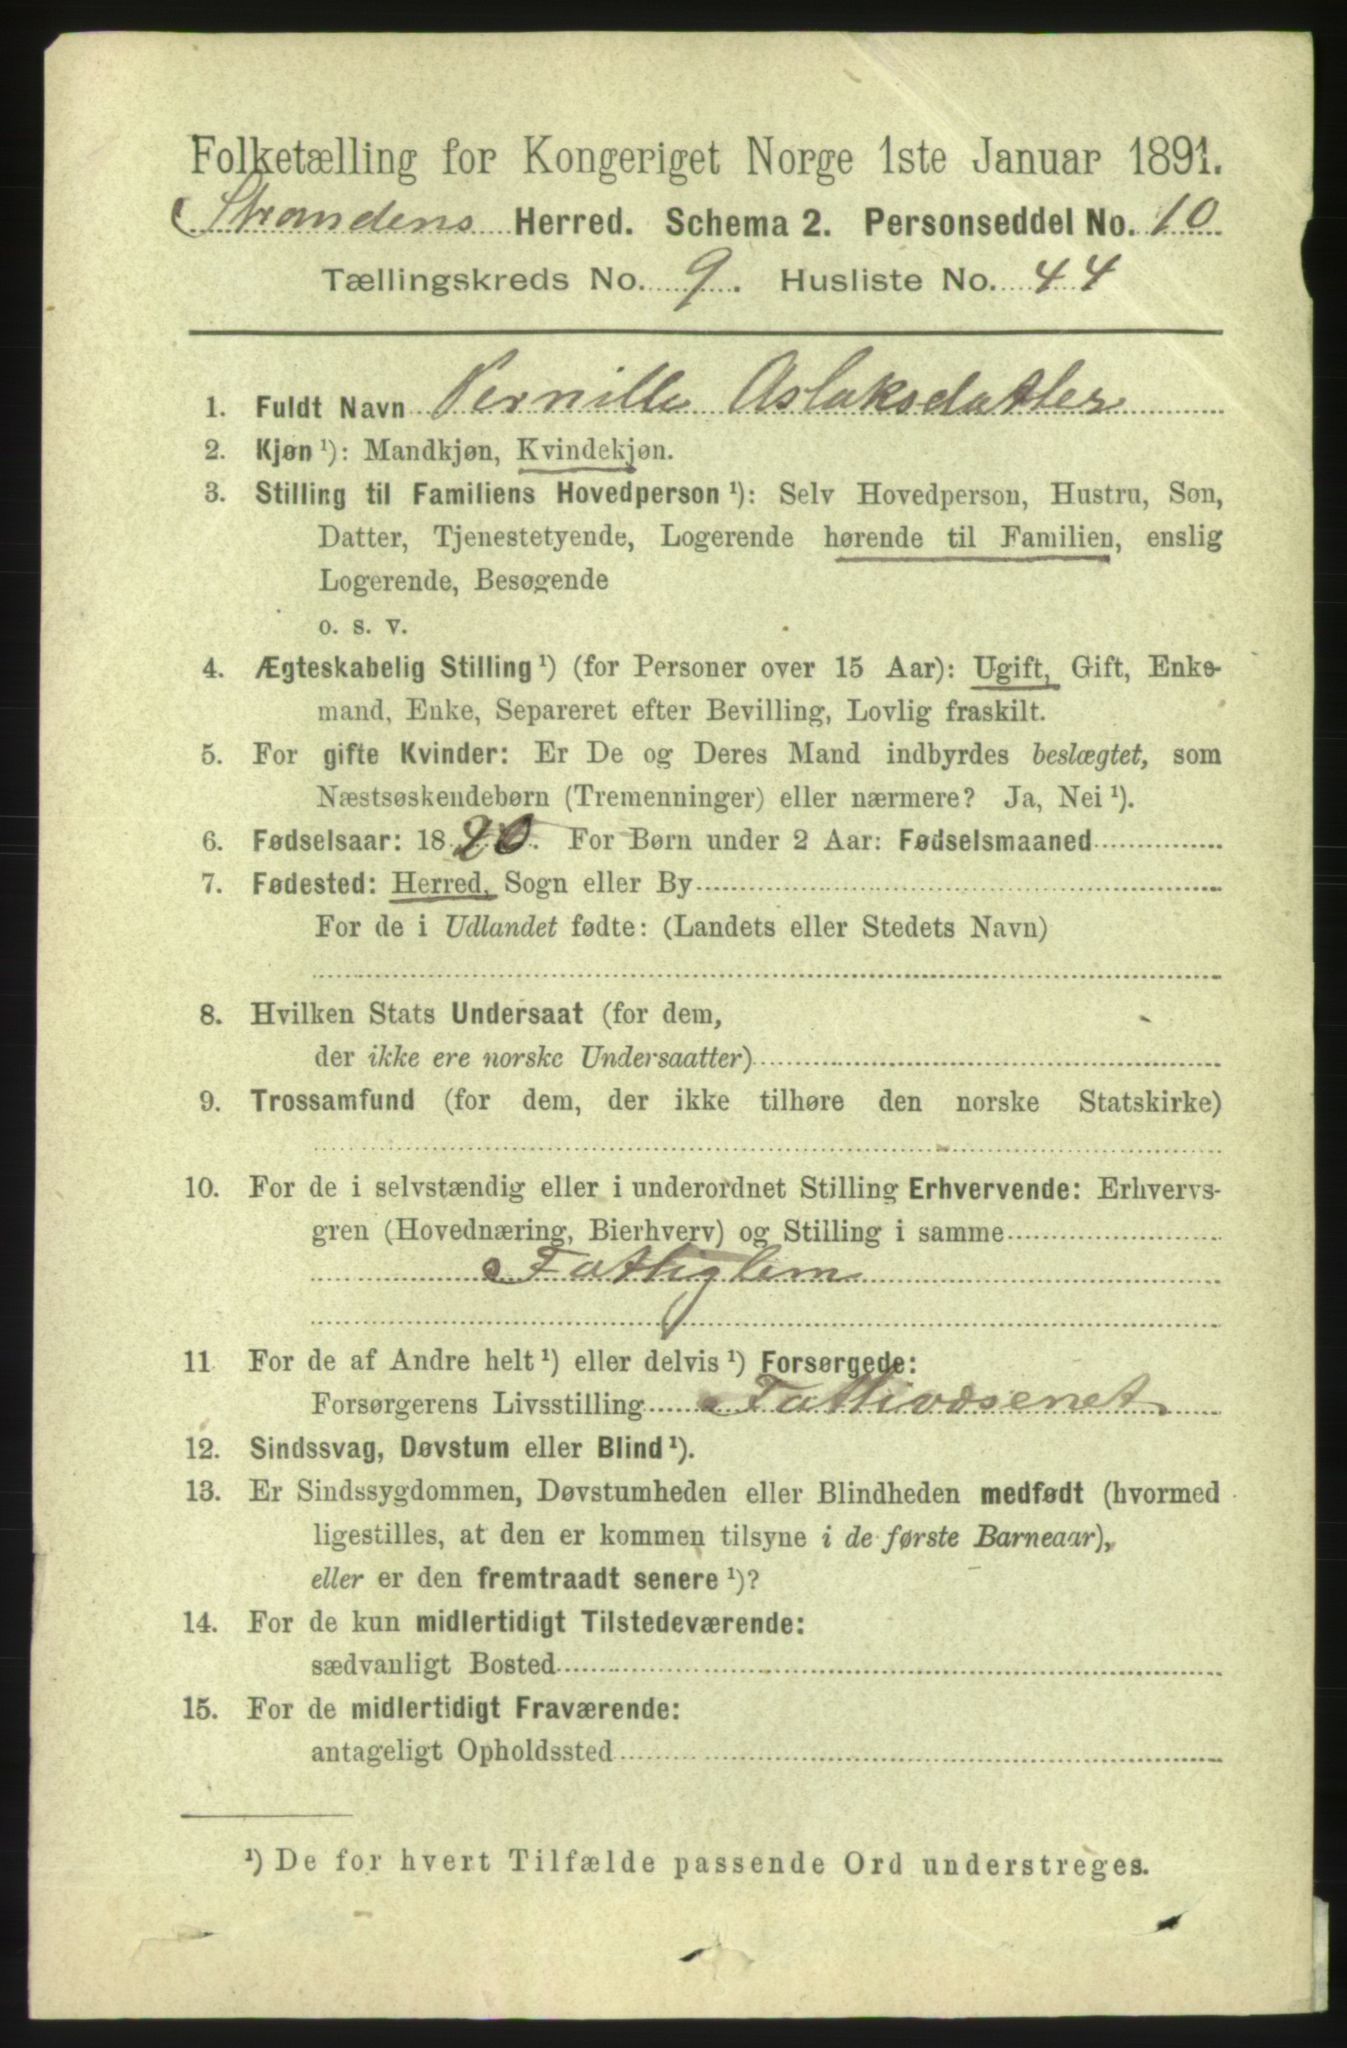 Folketælling for Kongeriget Norge 1ste Januar 1891.
Strandens Herred. Schema 2. Personseddel No. 10
Tællingskreds No. 9. Husliste No. 44
1. Fuldt Navn Pernille Aslaksdatter
2. Kjøn ¹): Mandkjøn, Kvindekjøn.
3. Stilling til Familiens Hovedperson ¹): Selv Hovedperson, Hustru, Søn,
Datter, Tjenestetyende, Logerende hørende til Familien, enslig
Logerende, Besøgende
o. s. v.
4. Ægteskabelig Stilling ¹) (for Personer over 15 Aar): Ugift, Gift, Enke-
mand, Enke, Separeret efter Bevilling, Lovlig fraskilt.
5. For gifte Kvinder: Er De og Deres Mand indbyrdes beslægtet, som
Næstsøskendebørn (Tremenninger) eller nærmere? Ja, Nei ¹).
6. Fødselsaar: 1820. For Børn under 2 Aar: Fødselsmaaned
7. Fødested: Herred, Sogn eller By
For de i Udlandet fødte: (Landets eller Stedets Navn)
8. Hvilken Stats Undersaat (for dem,
der ikke ere norske Undersaatter)
9. Trossamfund (for dem, der ikke tilhøre den norske Statskirke)
10. For de i selvstændig eller i underordnet Stilling Erhvervende: Erhvervs-
gren (Hovednæring, Bierhverv) og Stilling i samme
Fattiglem
11 For de af Andre helt ¹) eller delvis ¹) Forsørgede:
Forsørgerens Livsstilling Fattivæsenet
12. Sindssvag, Døvstum eller Blind ¹).
13. Er Sindssygdommen, Døvstumheden eller Blindheden medfødt (hvormed
ligestilles, at den er kommen tilsyne i de første Barneaar),
eller er den fremtraadt senere ¹)?
14. For de kun midlertidigt Tilstedeværende:
sædvanligt Bosted
15. For de midlertidigt Fraværende:
antageligt Opholdssted
¹) De for hvert Tilfælde passende Ord understreges.